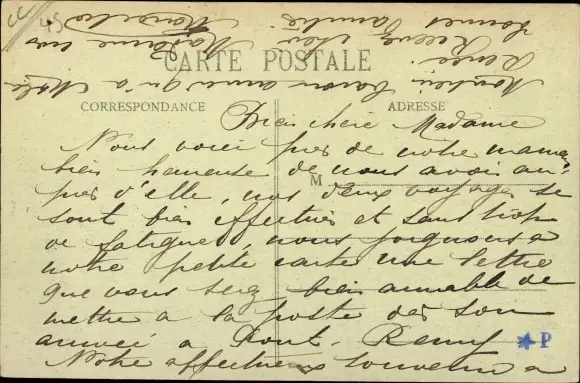 45
CARTE POSTALE
CORRESPONDANCE
ADRESSE
M
Bien chère Madame
Nous voici près de notre maman
bien heureuse de nous avoir au-
près d'elle, nos deux voyages se
sont bien effectués et sans trop
de fatigue, nous joignons à
notre petite carte une lettre
que vous serez bien aimable de
mettre à la poste dès son
arrivée à Pont-Remy
Notre affectueux souvenir à
Monsieur ainsi qu'à
Renée.
Recevez chère Madame nos
bonnes amitiés
Marcelle
P